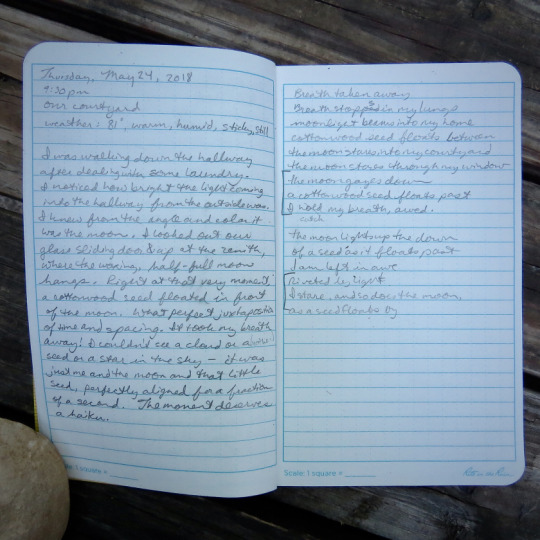 Thursday, May 24, 2018
9:30 pm
our courtyard
weather: 81°, warm, humid, sticky, still
I was walking down the hallway
after dealing with some laundry.
I noticed how bright the light coming
into the hallway from the outside was.
I knew from the angle and color it
was the moon. I looked out our
glass sliding door & up at the zenith,
where the waxing, half-full moon
hangs. Right at that very moment
a cottonwood seed floated in front
of the moon. What perfect juxtaposition
of time and spacing. It took my breath
away! I couldn't see a cloud or a
seed or a star in the sky — it was
just me and the moon and that little
seed, perfectly aligned for a fraction
of a second. The moment deserves
a haiku.
Scale: 1 square =
Breath taken away
Breath stopped in my lungs
moonlight beams into my home
cottonwood seed floats between
the moon stares into my courtyard
the moon stares through my window
the moon gazes down
a cottonwood seed floats past
I hold my breath, awed.
catch
the moon lights up the down
of a seed as it floats past
I am left in awe
riveted
I stare, and so does the moon,
as a seed floats by
Scale: 1 square =